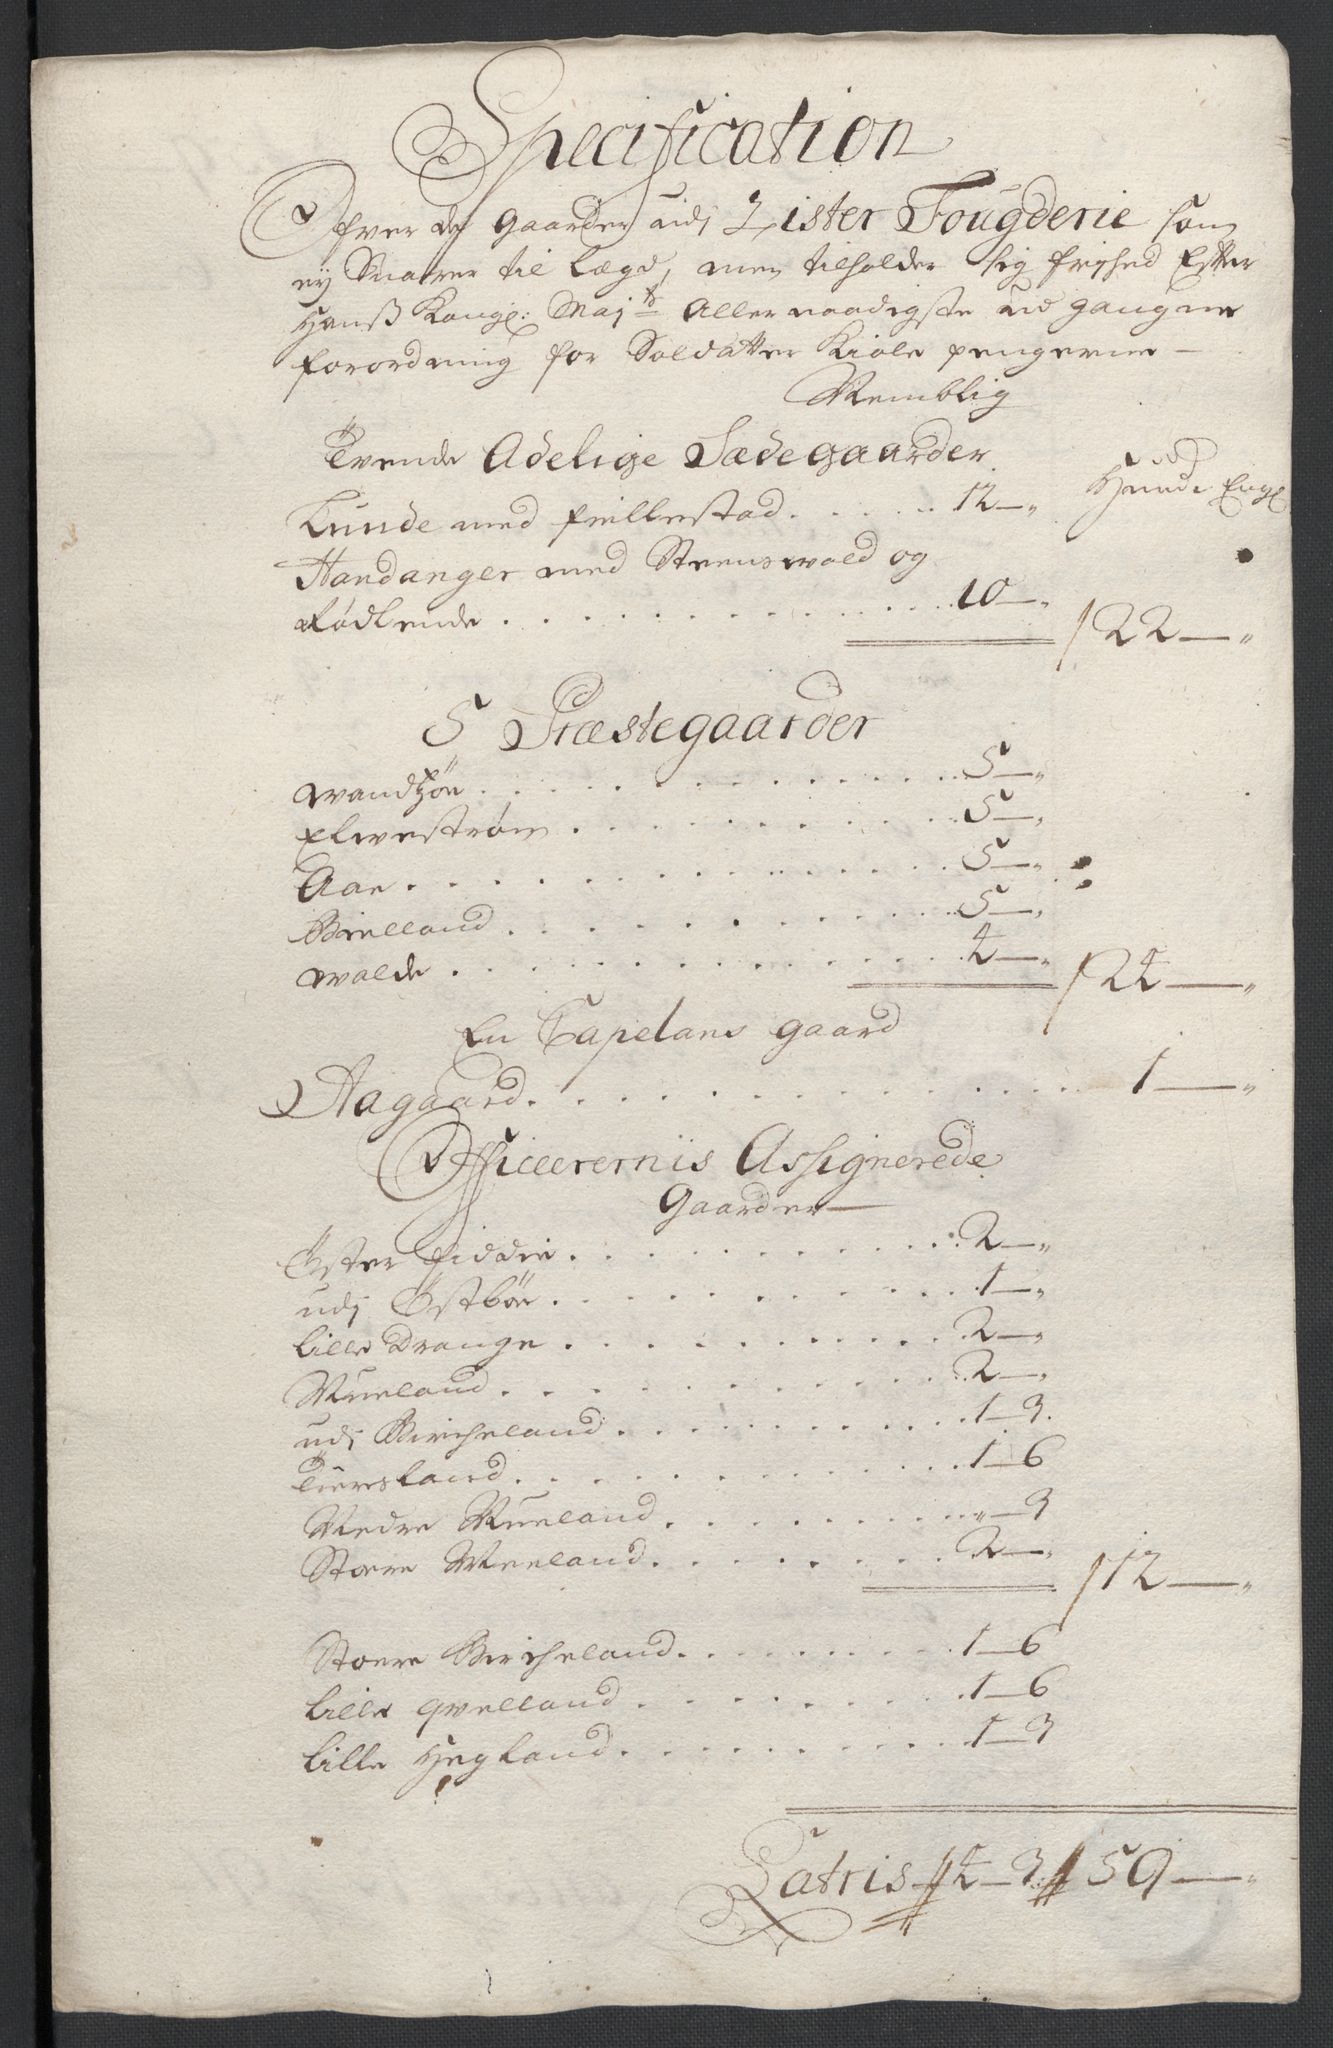 Specification
Ofver de Gaarder udj Lister Fougderie som
ey Suarer til Lægd, men tilholder sig frjhed Effter
Hans Kongl: Maj^ts Allernaadigste ud gangne
forordning for Soldatter Kiole pengerne —
Nemblig
Tvende Adelige Sædegaarder
Huude Engl
Lunde med Fiellestad . . . . . 12 — „
Handanger med Steenswald og
Rødlende . . . . . . . . . . . . 10 — „ / 22 — „
5 Præstegaarder
Wandsøe . . . . . . . . . . . . 5 — „
Elwestrøm . . . . . . . . . . . 5 — „
Aae . . . . . . . . . . . . . . 5 — „
Bielland . . . . . . . . . . . . 5 — „
Walde . . . . . . . . . . . . . 4 — „ / 24 — „
En Capelans gaard
Aagaard . . . . . . . . . . . . . . 1 — „
Officerernis Assignerede
Gaarder —
Øster Fiddie . . . . . . . . . . 2 — „
udj Østbøe . . . . . . . . . . . 1 — „
Lille Drange . . . . . . . . . . 2 — „
Mueland . . . . . . . . . . . . 2 — „
udj Bircheland . . . . . . . . . 1 — 3
Tiersland . . . . . . . . . . . . 1 — 6
Nedre Mueland . . . . . . . . . „ — 3
Stoere Meeland . . . . . . . . . 2 — „ / 12 — „
Stoere Bircheland . . . . . . . . 1 — 6
Lille Qvelland . . . . . . . . . . 1 — 6
Lille Hegland . . . . . . . . . . 1 — 3
Latris // 4 — 3 // 59 — „